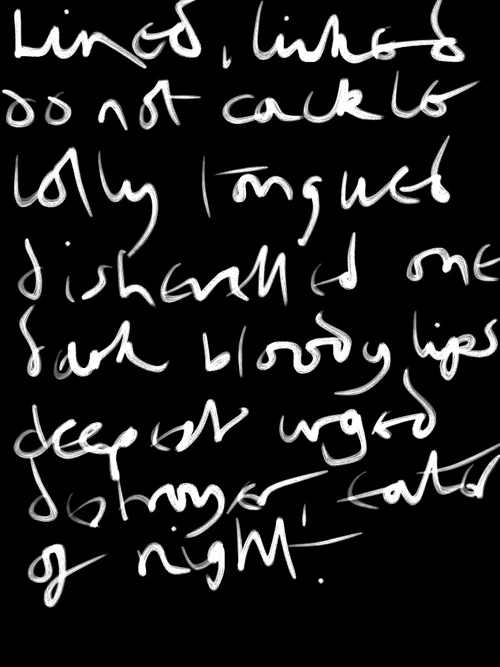 Lined, linked
do not cackle
lolly tongued
dishevelled one
dark bloody lips
deepest urged
destroyer, eater
of night.